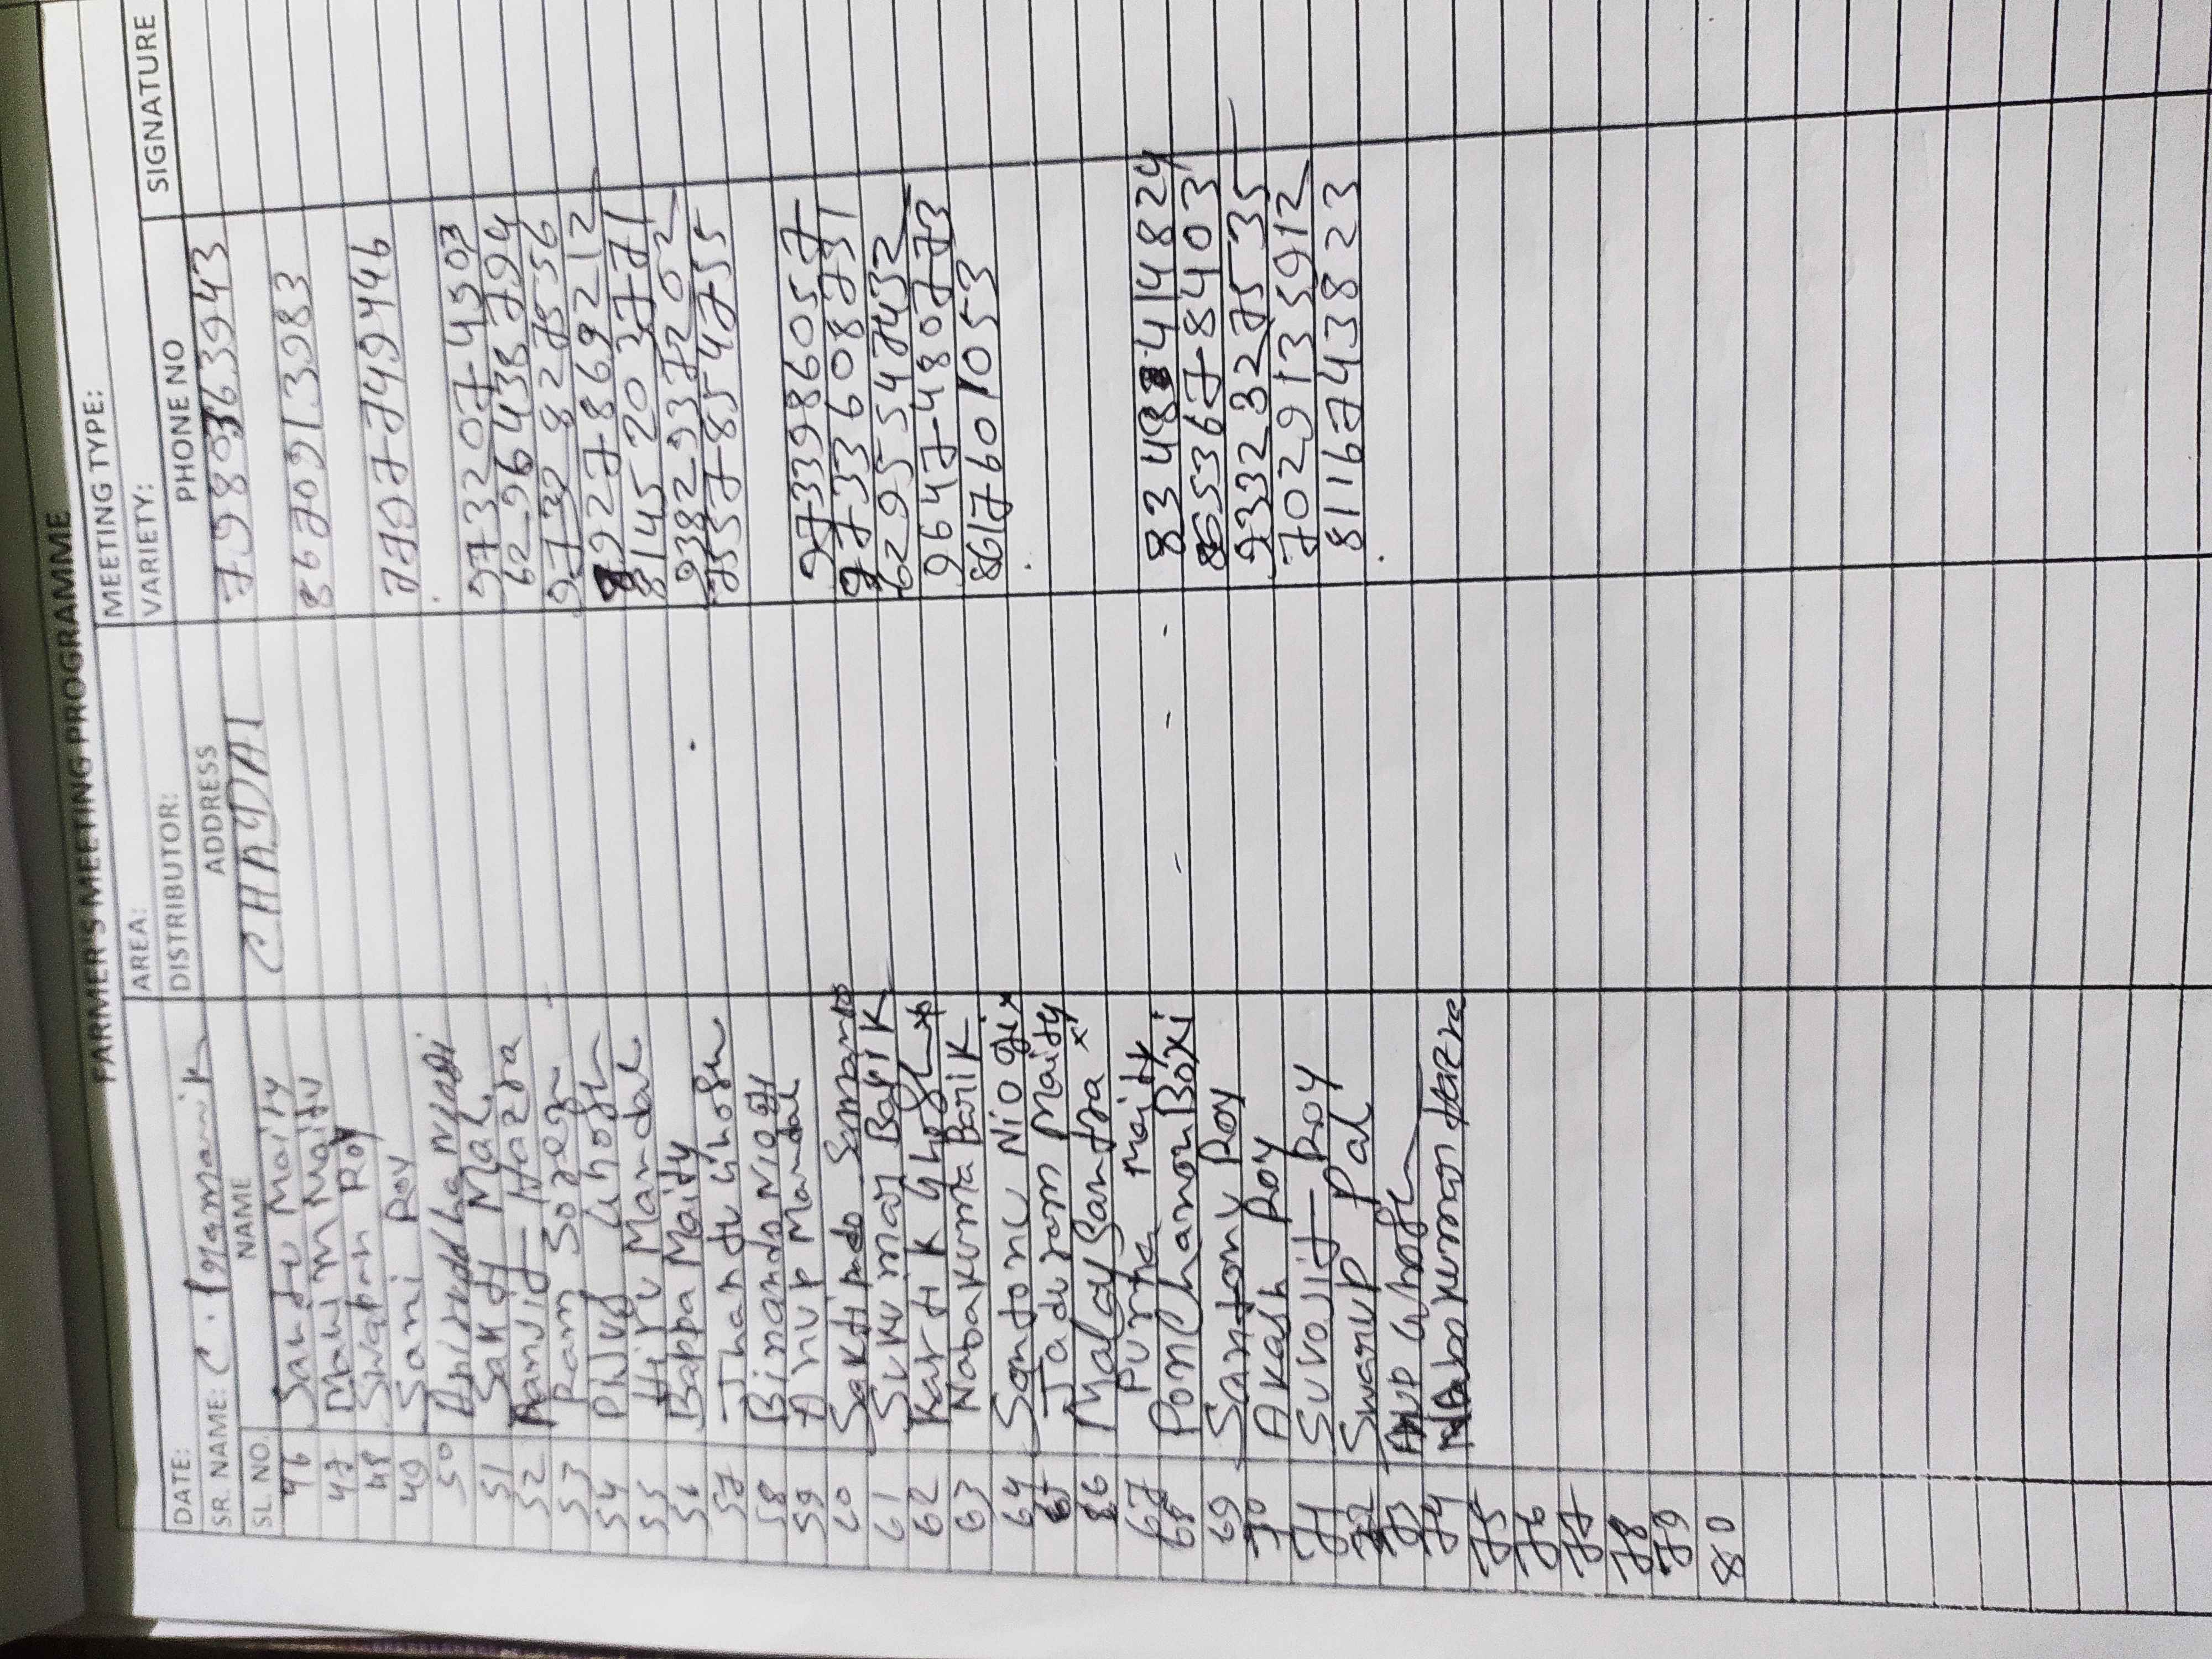 FARMER'S MEETING PROGRAMME
DATE: AREA: MEETING TYPE:
SR. NAME: DISTRIBUTOR: VARIETY:
SL. NO. NAME ADDRESS PHONE NO SIGNATURE
46 Santu Maity CHANDAI 7980363943
47 Mahim Maity
48 Swapan Roy 8670913983
49 Sami Roy
50 Anirudha Niyogi 7797749446
51 Sakti Mal
52 Ranjit Hazra 9732074503
53 Ram Soren 6296438794
54 Ghosh 9732827556
55 Hiru Mandal 8927869212
56 Bappa Maity 8145203771
57 Jhantu Ghosh 9382937202
58 Bimando Niogy 7557854755
59 Anup Mandal
60 Saktipado 9733986057
61 Sukumar Barik 9733608751
62 Kartik Ghosh 6295547432
63 Nabakumar Barik 9647480773
64 Santonu Niogi x 8617601053
65 Jaduram Maity
66 Malay Santra x
67 Purna Maity
68 Ponchanon Boxi 834884 14824
69 Santonu Roy 8653678403
70 Akash Roy 9332327535
71 Suvojit Roy 7029135912
72 Swarup Pal 8116743823
73 Anup Ghosh
74 Nabokumar Hazra
75
76
77
78
79
80